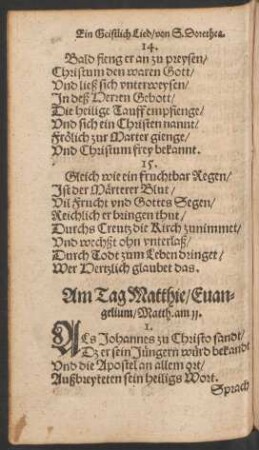 Ein Geistlich Lied/von S. Dorothea.
14.
Bald fieng er an zu preysen/
Christum den waren Gott/
Vnd ließ sich vnterweysen/
In deß Herren Gebott/
Die heilige Tauff empfienge/
Vnd sich ein Christen nannt/
Frölich zur Marter gienge/
Vnd Christum frey bekannt.
15.
Gleich wie ein fruchtbar Regen/
Ist der Märterer Blut/
Vil Frucht vnd Gottes Segen/
Reichlich er bringen thut/
Durchs Creutz die Kirch zunimmet/
Vnd wechßt ohn vnterlaß/
Durch Tode zum Leben dringet/
Wer Hertzlich glaubet das.
Am Tag Matthie/Euan-
gelium/Matth. am 11.
1.
ALs Johannes zu Christo sandt/
Dz er sein Jüngern würd bekandt
Vnd die Apostel an allem ort/
Außbreyteten sein heiligs Wort.
Sprach